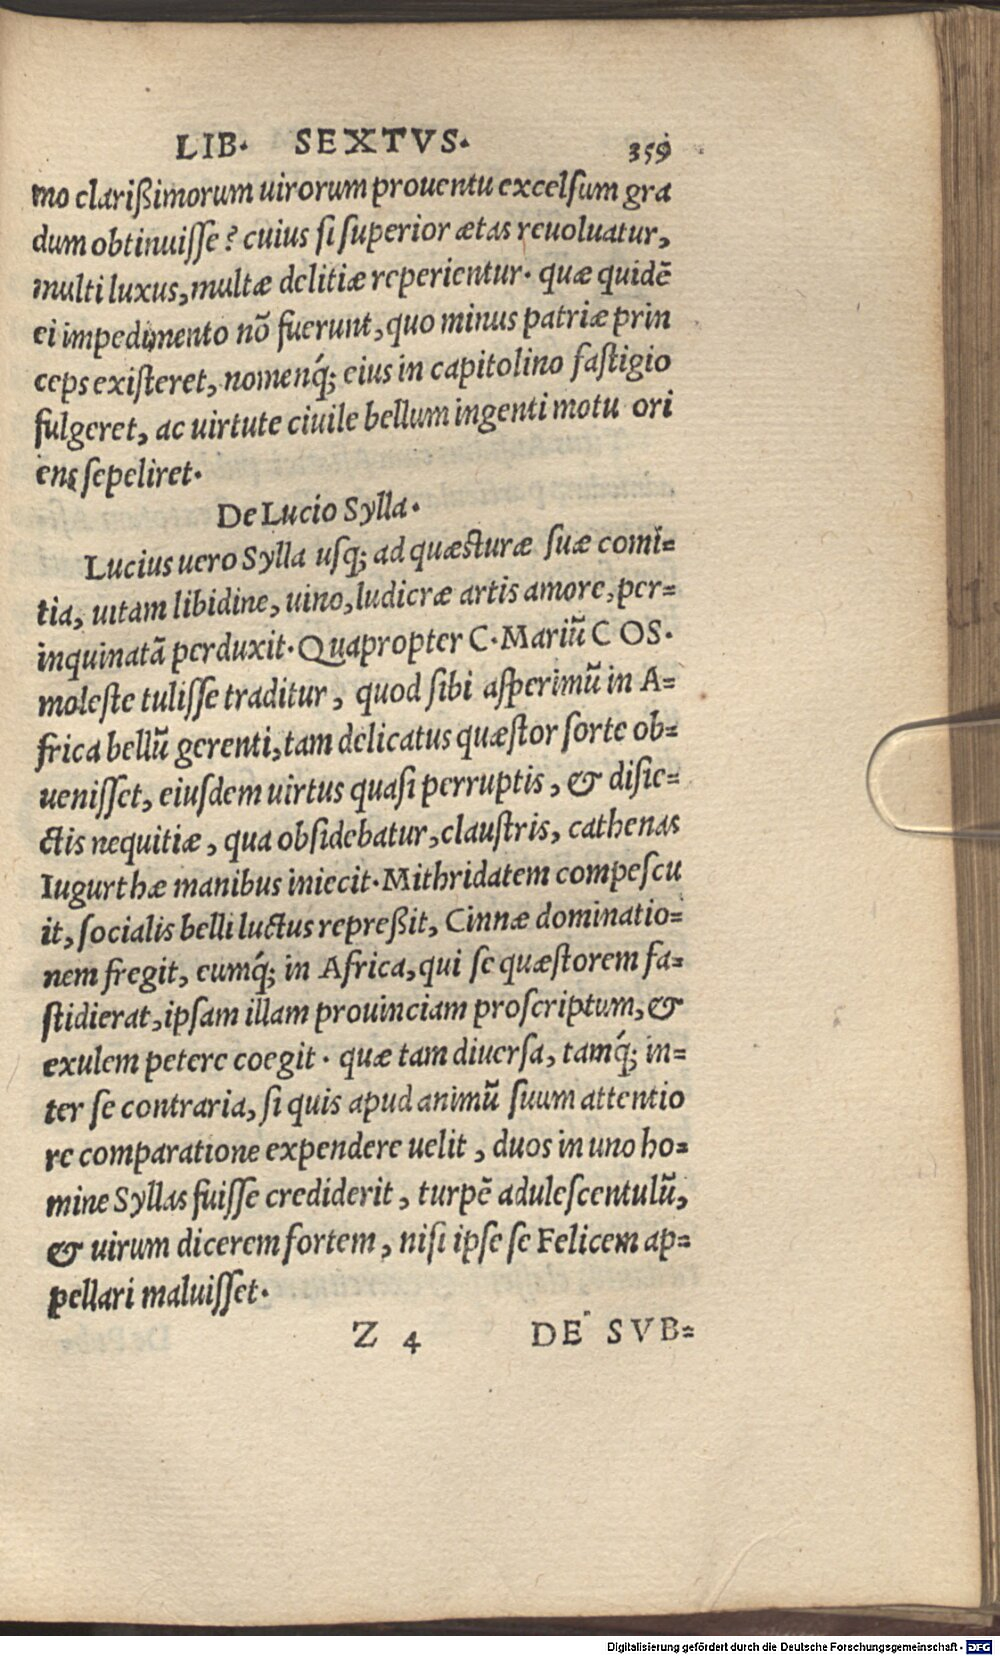 LIB. SEXTVS. 359
mo clarißimorum uirorum prouentu excelſum gra
dum obtinuiſſe? cuius ſi ſuperior ætas reuoluatur,
multi luxus, multæ delitiæ reperientur. quæ quidē
ei impedimento nō fuerunt, quo minus patriæ prin
ceps exiſteret, nomenq́; eius in capitolino faſtigio
fulgeret, ac uirtute ciuile bellum ingenti motu ori
ens ſepeliret.
De Lucio Sylla.
Lucius uero Sylla uſq; ad quæsturæ ſuæ comi=
tia, uitam libidine, uino, ludicræ artis amore, per=
inquinatā perduxit. Quapropter C. Mariū COS.
moleſte tuliſſe traditur, quod ſibi aſperimū in A=
frica bellū gerenti, tam delicatus quæſtor ſorte ob=
ueniſſet, eiuſdem uirtus quaſi perruptis, & diſie=
ctis nequitiæ, qua obſidebatur, clauſtris, cathenas
Iugurthæ manibus iniecit. Mithridatem compeſcu
it, ſocialis belli luctus repreßit, Cinnæ dominatio=
nem fregit, eumq́; in Africa, qui ſe quæſtorem fa=
ſtidierat, ipſam illam prouinciam proſcriptum, &
exulem petere coegit. quæ tam diuerſa, tamq́; in=
ter ſe contraria, ſi quis apud animū ſuum attentio
re comparatione expendere uelit, duos in uno ho=
mine Syllas fuiſſe crediderit, turpē aduleſcentulū,
& uirum dicerem fortem, niſi ipſe ſe Felicem ap=
pellari maluiſſet.
Z 4 DE SVB=
Digitalisierung gefördert durch die Deutsche Forschungsgemeinschaft - DFG